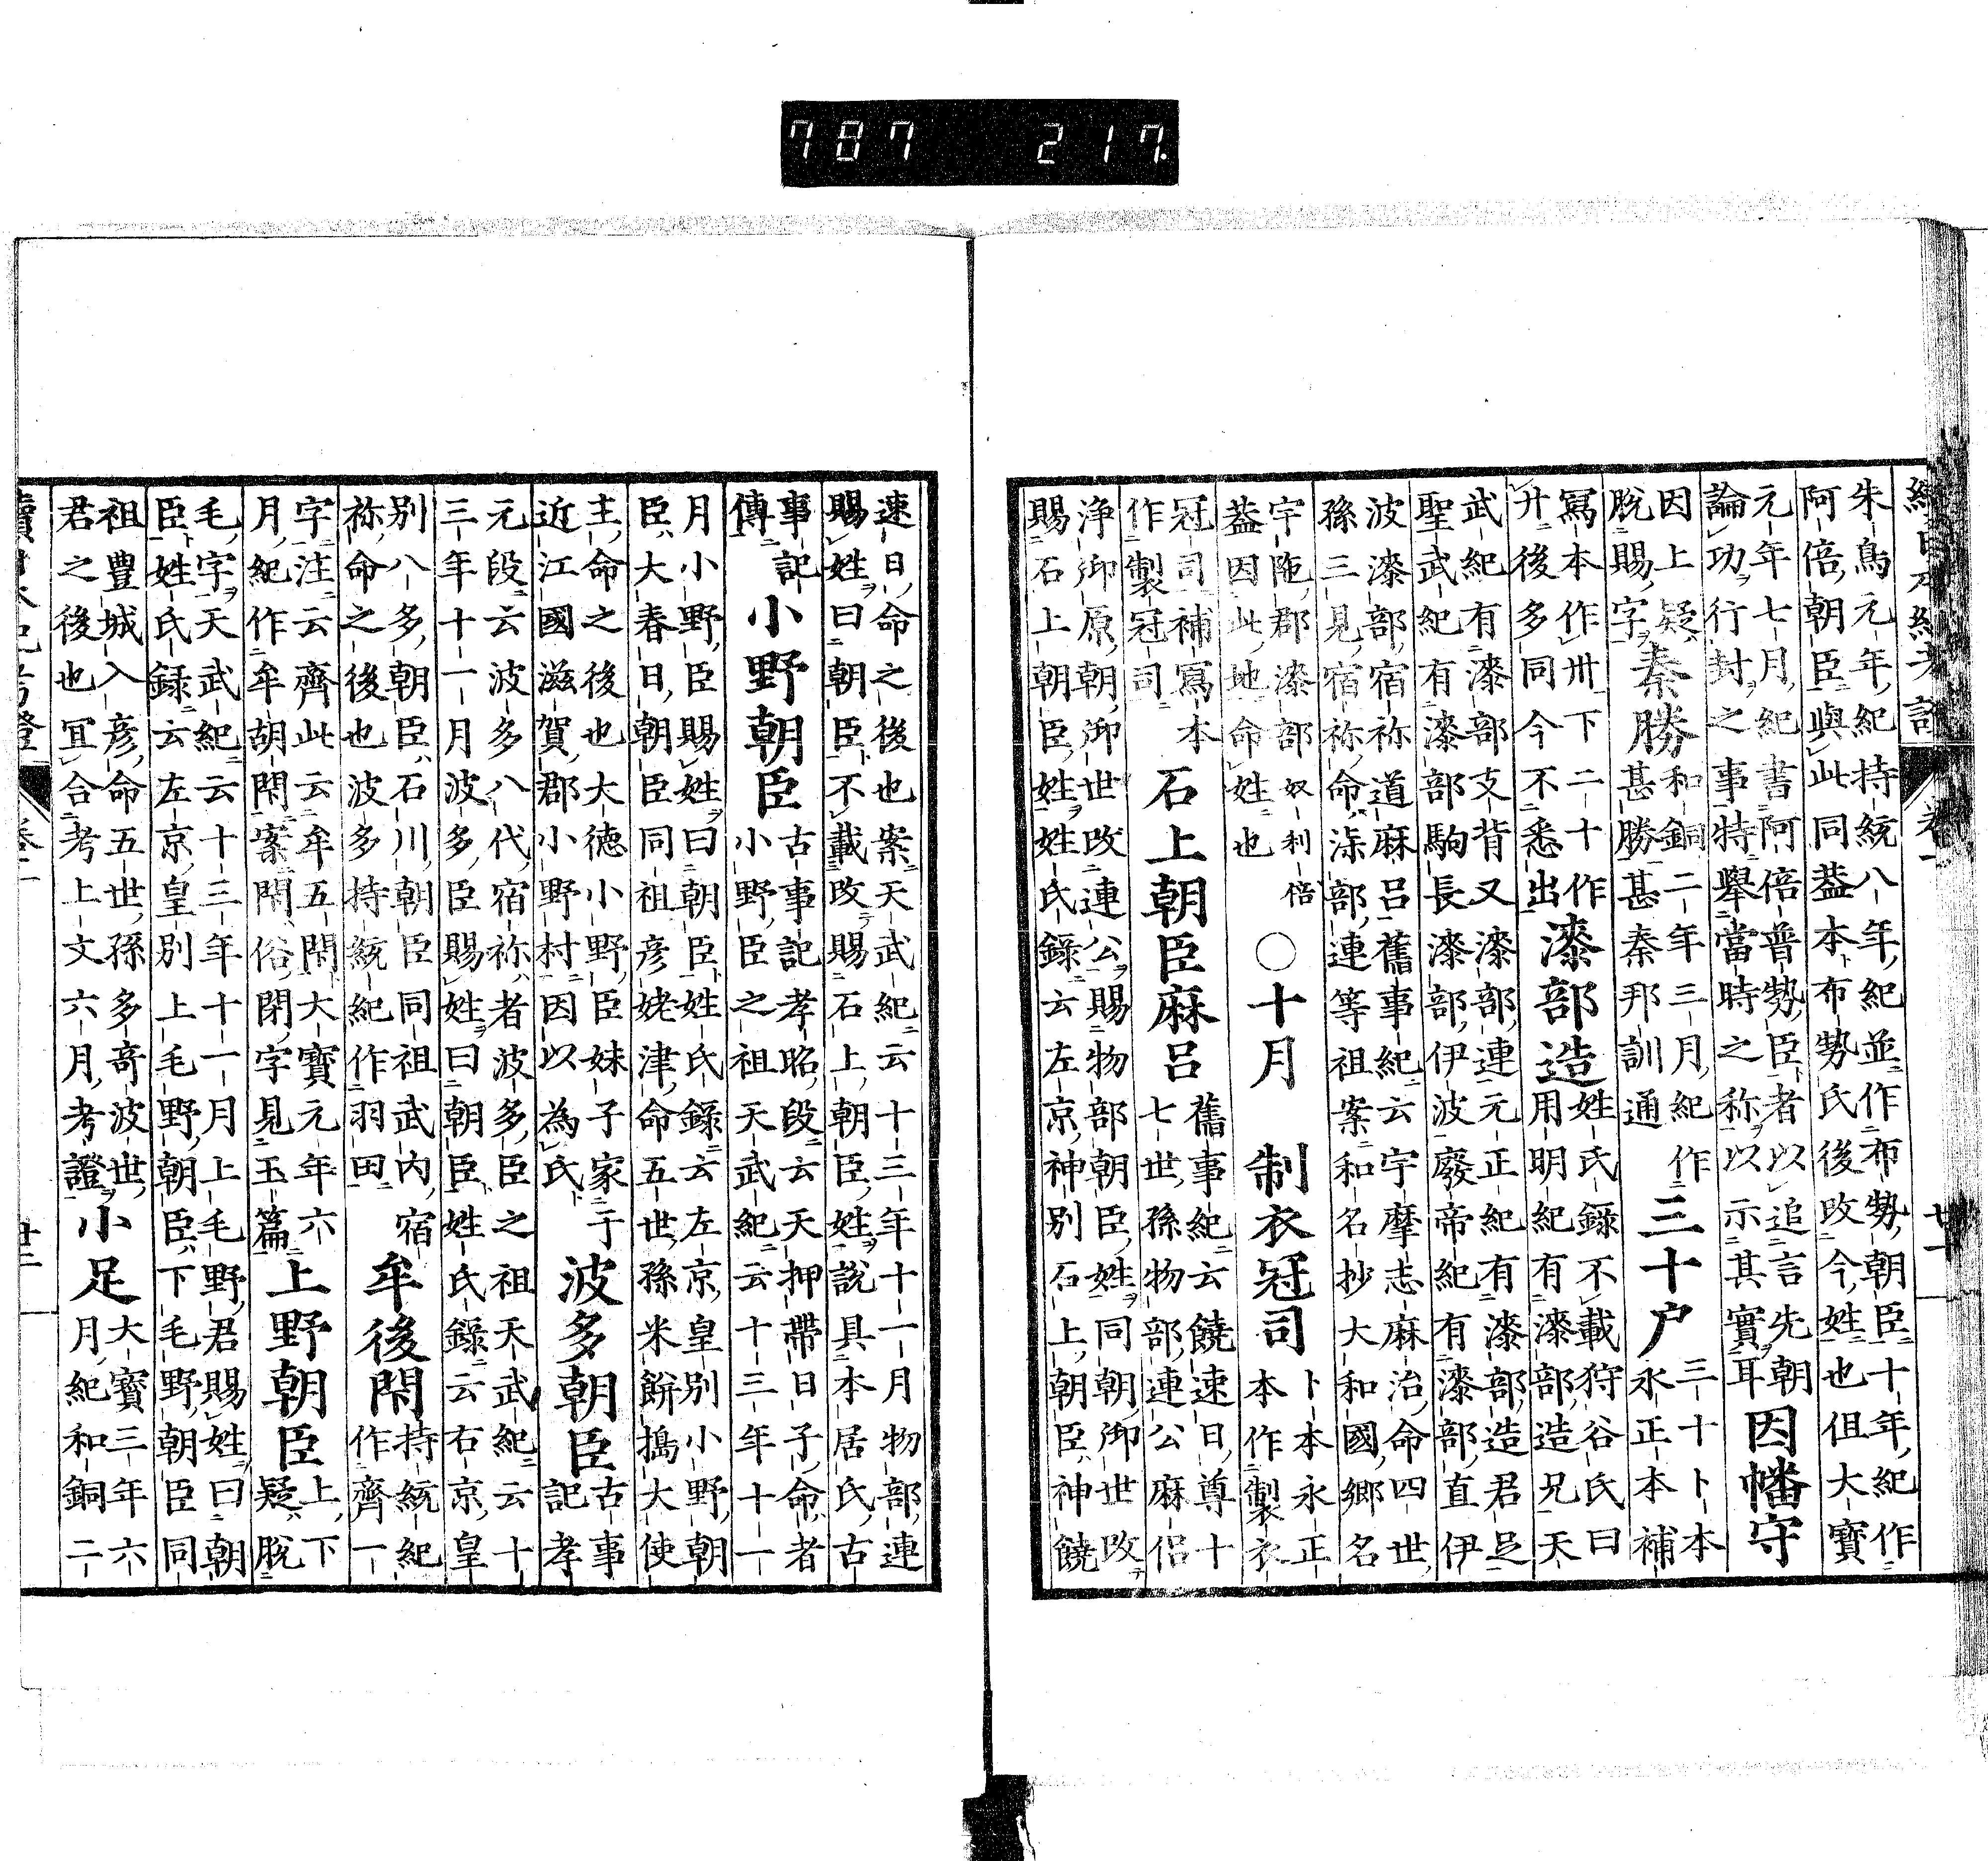 787 217.
朱鳥元年紀持統八年紀並作布勢朝臣十年紀作
阿倍朝臣與此同葢本布勢氏後改今姓也但大寶
元年七月紀書阿倍普勢臣者以追言先朝
論功行封之事特舉當時之称以示其實耳
因幡守
因上疑
脫賜字
秦勝
和銅二年三月紀作
甚勝甚秦邦訓通
三十戶
三十卜本
永正本補
寫本作卅下二十作
廾後多同今不悉出
漆部造
姓氏錄不載狩谷氏曰
用明紀有漆部造兄天
武紀有漆部支背又漆部連元正紀有漆部造君足
聖武紀有漆部駒長漆部伊波廢帝紀有漆部直伊
波漆部宿祢道麻呂舊事紀云宇摩志麻治命四世
孫三見宿祢命漆部連等祖案和名抄大和國鄉名
宇陁郡漆部奴利倍
葢因此地命姓也
〇十月
制衣冠司
卜本永正
本作製衣
冠司補寫本
作製冠司
石上朝臣麻呂
舊事紀云饒速日尊十
七世孫物部連公麻侶
浄御原朝御世改連公賜物部朝臣姓同朝御世改
賜石上朝臣姓姓氏錄云左京神別石上朝臣神饒
速日命之後也案天武紀云十三年十一月物部連
賜姓曰朝臣不載改賜石上朝臣姓說具本居氏古
事記
傳
小野朝臣
古事記孝昭段云天押帶日子命者
小野臣之祖天武紀云十三年十一
月小野臣賜姓曰朝臣姓氏錄云左京皇別小野朝
臣大春日朝臣同祖彦姥津命五世孫米餅搗大使
主命之後也大德小野臣妹子家于
近江國滋賀郡小野村因以為氏
波多朝臣
古事
記孝
元段云波多八代宿祢者波多臣之祖天武紀云十
三年十一月波多臣賜姓曰朝臣姓氏錄云右京皇
別八多朝臣石川朝臣同祖武內宿
祢命之後也波多持統紀作羽田
牟後閇
持統紀
作齊一
字注云齊此云牟五閇大寶元年六
月紀作牟胡閇案閇俗閉字見玉篇
上野朝臣
上下
疑脫
毛字天武紀云十三年十一月上毛野君賜姓曰朝
臣姓氏録云左京皇別上毛野朝臣下毛野朝臣同
祖豊城入彦命五世孫多奇波世
君之後也宜合考上文六月考證
小足
大寶三年六
月紀和銅二